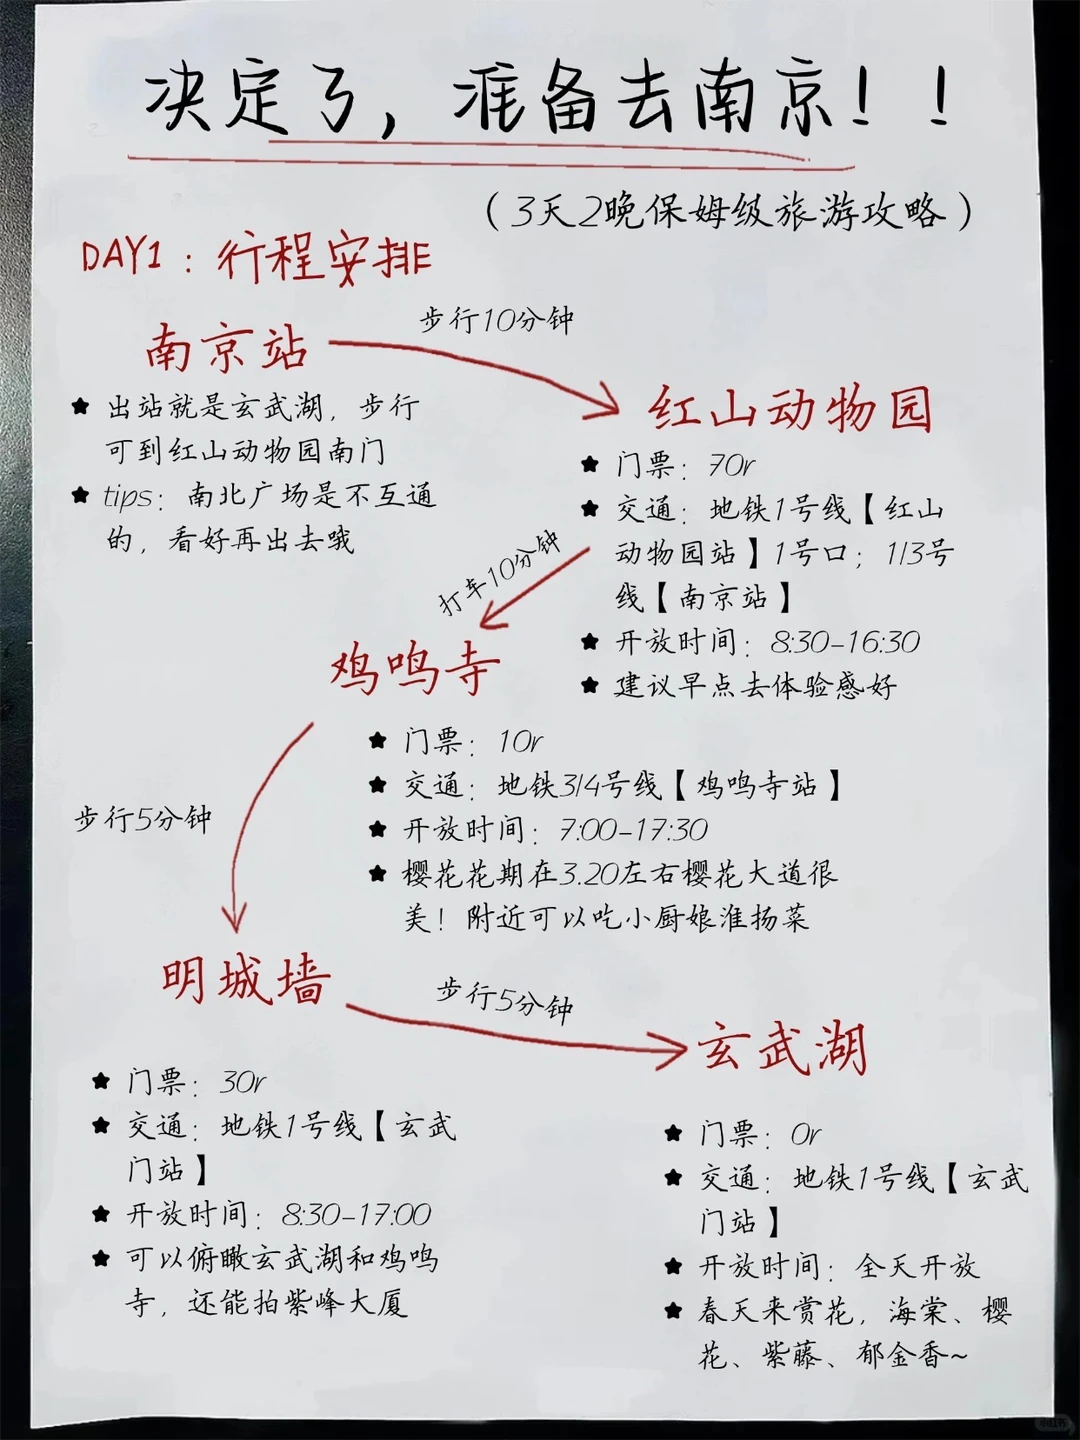 决定了，准备去南京！！
（3天2晚保姆级旅游攻略）
DAY1：行程安排
南京站
步行10分钟
★ 出站就是玄武湖，步行
可到红山动物园南门
★ tips：南北广场是不互通
的，看好再出去哦
红山动物园
★ 门票：70r
★ 交通：地铁1号线【红山
动物园站】1号口；1/3号
线【南京站】
★ 开放时间：8:30-16:30
★ 建议早点去体验感好
打车10分钟
鸡鸣寺
★ 门票：10r
★ 交通：地铁3/4号线【鸡鸣寺站】
★ 开放时间：7:00-17:30
★ 樱花花期在3.20左右樱花大道很
美！附近可以吃小厨娘淮扬菜
步行5分钟
明城墙
★ 门票：30r
★ 交通：地铁1号线【玄武
门站】
★ 开放时间：8:30-17:00
★ 可以俯瞰玄武湖和鸡鸣
寺，还能拍紫峰大厦
步行5分钟
玄武湖
★ 门票：0r
★ 交通：地铁1号线【玄武
门站】
★ 开放时间：全天开放
★ 春天来赏花，海棠、樱
花、紫藤、郁金香~